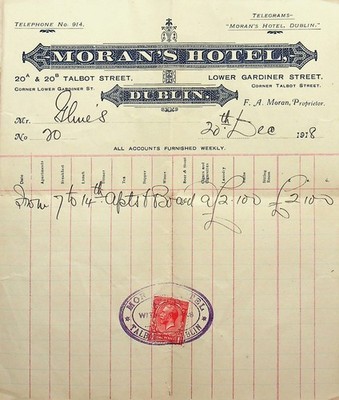 TELEPHONE No. 914.
TELEGRAMS-
"MORAN'S HOTEL, DUBLIN."
MORAN'S HOTEL,
20A & 20B TALBOT STREET,
CORNER LOWER GARDINER ST.
LOWER GARDINER STREET,
CORNER TALBOT STREET.
DUBLIN.
F. A. Moran, Proprietor.
Mr.
No 20
20th Dec 1918
ALL ACCOUNTS FURNISHED WEEKLY.
Date Apartments Breakfast Lunch Dinner Tea Supper Wines Laundry
From 7 to 14th Apts & Board a/ £2.10.0 £2.10.0
MORAN'S HOTEL
TALBOT DUBLIN